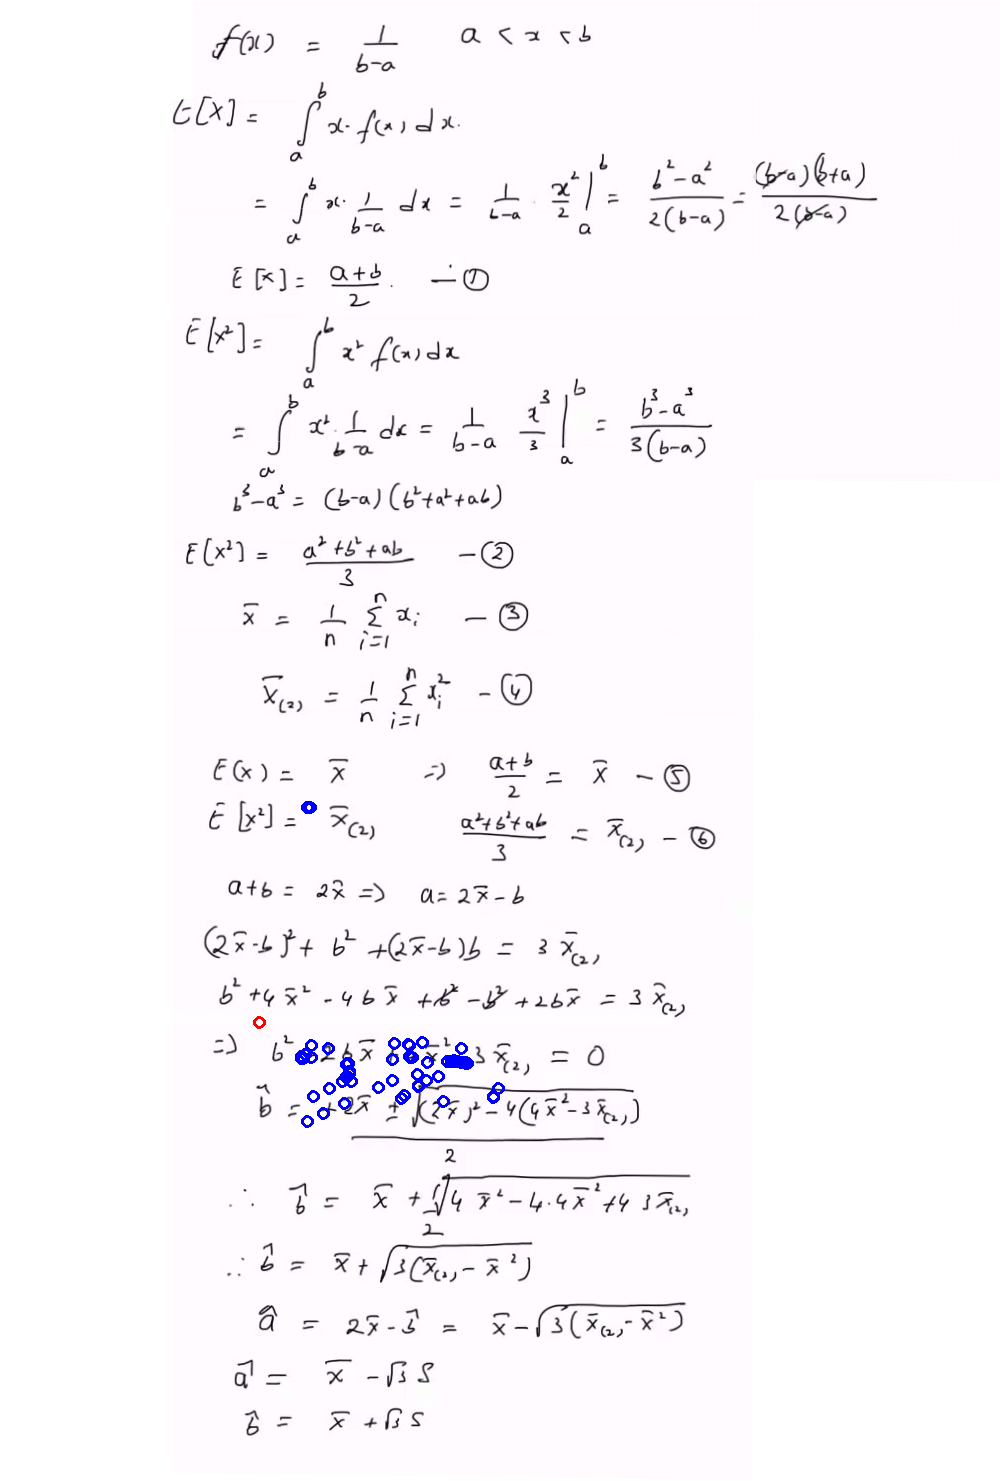 f(x) = 1/(b-a)   a < x < b
E[X] = ∫_a^b x. f(x) dx.
= ∫_a^b x. 1/(b-a) dx = 1/(b-a) . x²/2 |_a^b = (b²-a²)/(2(b-a)) = (b-a)(b+a)/(2(b-a))
E[x] = (a+b)/2. — ①
E[x²] = ∫_a^b x² f(x) dx
= ∫_a^b x². 1/(b-a) dx = 1/(b-a) x³/3 |_a^b = (b³-a³)/(3(b-a))
b³-a³ = (b-a)(b²+a²+ab)
E[x²] = (a²+b²+ab)/3 — ②
x̄ = 1/n Σ_{i=1}^n x_i — ③
x̄_(2) = 1/n Σ_{i=1}^n x_i² — ④
E(x) = x̄ => (a+b)/2 = x̄ — ⑤
E[x²] = x̄_(2)   (a²+b²+ab)/3 = x̄_(2) — ⑥
a+b = 2x̄ => a = 2x̄-b
(2x̄-b)² + b² + (2x̄-b)b = 3 x̄_(2)
b² + 4x̄² - 4b x̄ + b² - b² + 2b x̄ = 3 x̄_(2)
=> b² 2b x̄ x̄² 3 x̄_(2) = 0
b̂ = (+2x̄ ± √((2x̄)² - 4(4x̄² - 3x̄_(2))))/2
∴ b̂ = x̄ + √(4 x̄² - 4.4x̄² + 4 3x̄_(2))/2
∴ b̂ = x̄ + √(3(x̄_(2) - x̄²))
â = 2x̄ - b̂ = x̄ - √(3(x̄_(2) - x̄²))
â = x̄ - √3 S
b̂ = x̄ + √3 S